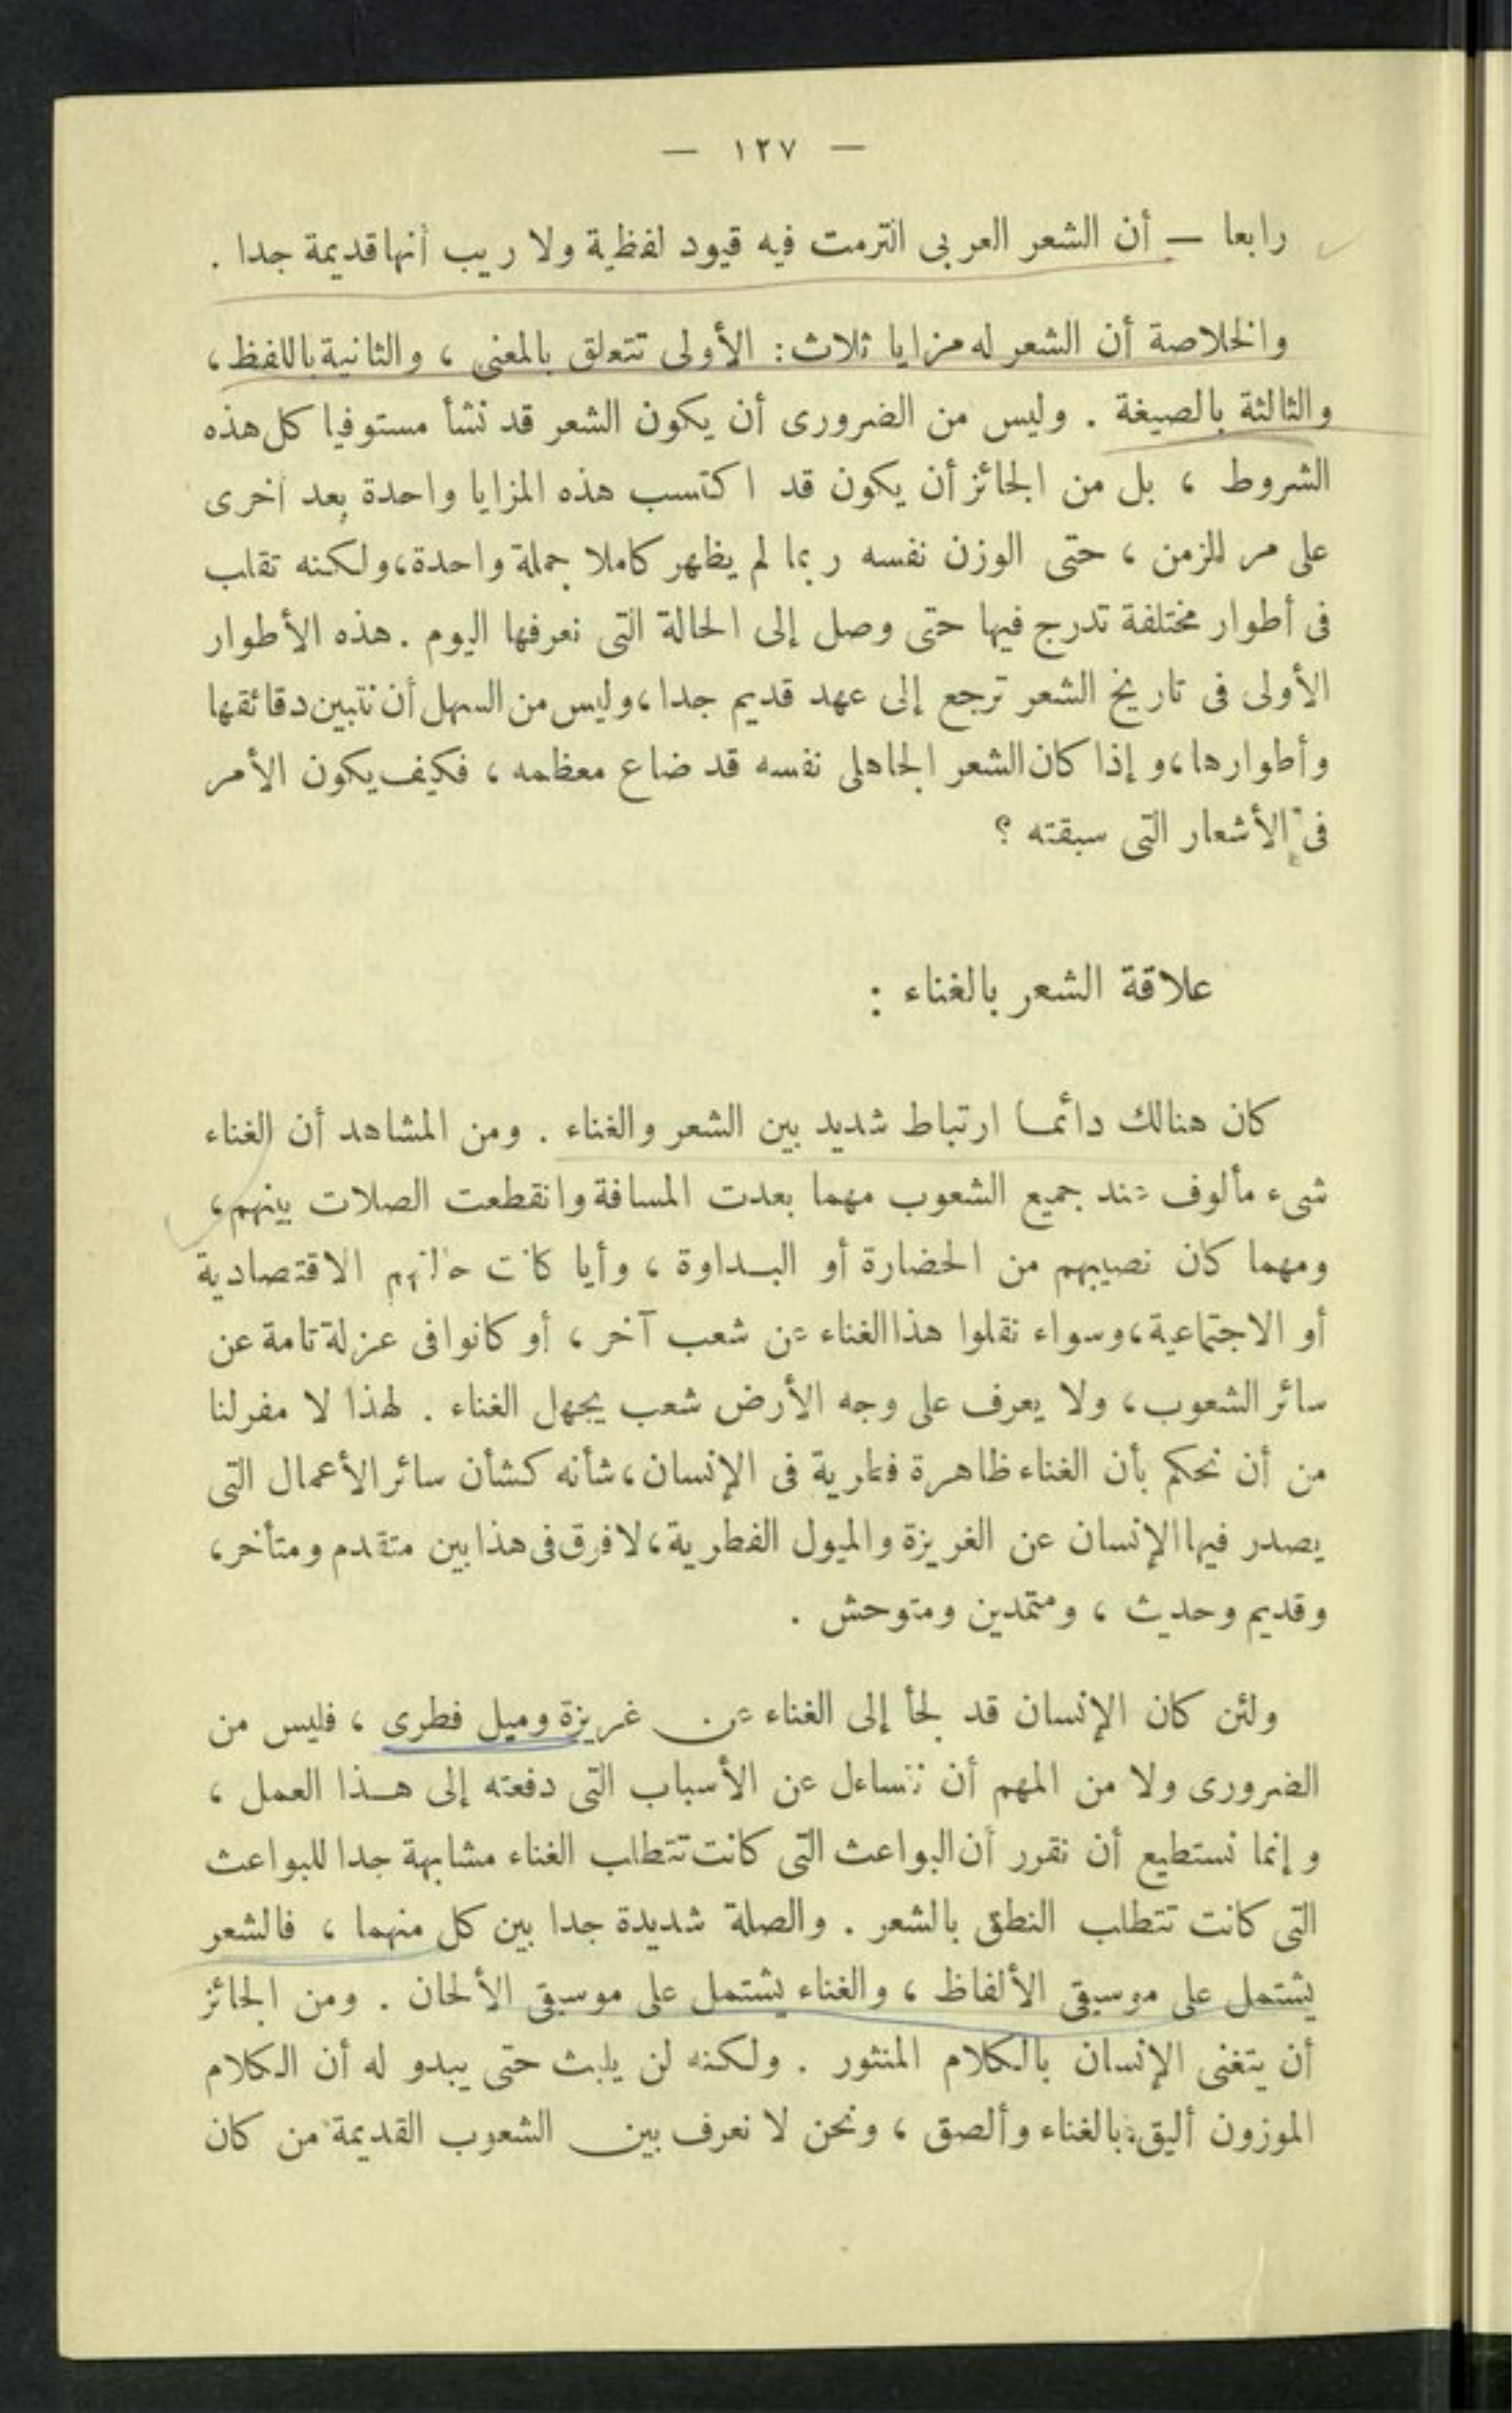 — ١٢٧ —
رابعا — أن الشعر العربى التزمت فيه قيود لفظية ولا ريب أنها قديمة جدا .
والخلاصة أن الشعر له مزايا ثلاث : الأولى تتعلق بالمعنى ، والثانية باللفظ ،
والثالثة بالصيغة . وليس من الضرورى أن يكون الشعر قد نشأ مستوفيا كل هذه
الشروط ، بل من الجائز أن يكون قد اكتسب هذه المزايا واحدة بعد أخرى
على مر الزمن ، حتى الوزن نفسه ربما لم يظهر كاملا جملة واحدة ، ولكنه تقلب
فى أطوار مختلفة تدرج فيها حتى وصل إلى الحالة التى نعرفها اليوم . هذه الأطوار
الأولى فى تاريخ الشعر ترجع إلى عهد قديم جدا ، وليس من السهل أن نتبين دقائقها
وأطوارها ، وإذا كان الشعر الجاهلى نفسه قد ضاع معظمه ، فكيف يكون الأمر
فى الأشعار التى سبقته ؟
علاقة الشعر بالغناء :
كان هنالك دائما ارتباط شديد بين الشعر والغناء . ومن المشاهد أن الغناء
شىء مألوف عند جميع الشعوب مهما بعدت المسافة وانقطعت الصلات بينهم ،
ومهما كان نصيبهم من الحضارة أو البداوة ، وأيا كانت حالتهم الاقتصادية
أو الاجتماعية ، وسواء نقلوا هذا الغناء عن شعب آخر ، أو كانوا فى عزلة تامة عن
سائر الشعوب ، ولا يعرف على وجه الأرض شعب يجهل الغناء . لهذا لا مفر لنا
من أن نحكم بأن الغناء ظاهرة فطرية فى الإنسان ، شأنه كشأن سائر الأعمال التى
يصدر فيها الإنسان عن الغريزة والميول الفطرية ، لا فرق فى هذا بين متقدم ومتأخر ،
وقديم وحديث ، ومتمدين ومتوحش .
ولئن كان الإنسان قد لجأ إلى الغناء عن غريزة وميل فطرى ، فليس من
الضرورى ولا من المهم أن نتساءل عن الأسباب التى دفعته إلى هذا العمل ،
وإنما نستطيع أن نقرر أن البواعث التى كانت تتطلب الغناء مشابهة جدا للبواعث
التى كانت تتطلب النطق بالشعر . والصلة شديدة جدا بين كل منهما ، فالشعر
يشتمل على موسيقى الألفاظ ، والغناء يشتمل على موسيقى الألحان . ومن الجائز
أن يتغنى الإنسان بالكلام المنثور . ولكنه لن يلبث حتى يبدو له أن الكلام
الموزون أليق بالغناء وألصق ، ونحن لا نعرف بين الشعوب القديمة من كان